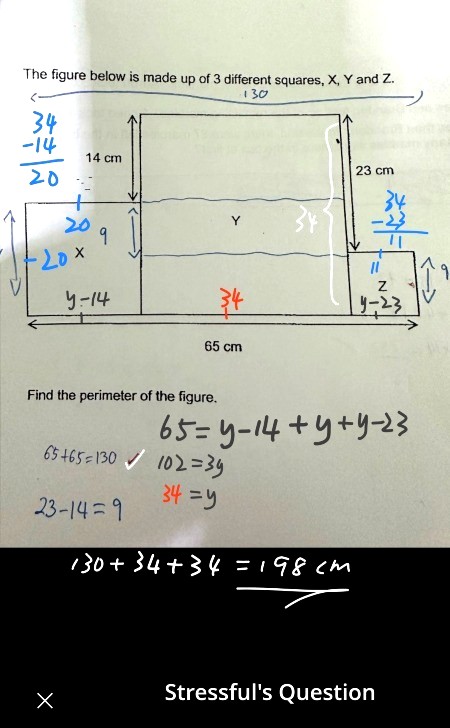 The figure below is made up of 3 different squares, X, Y and Z.
130
34
-14
20
14 cm
23 cm
34
-23
11
20
9
Y
34
-20
X
11
Z
9
y-14
34
y-23
65 cm
Find the perimeter of the figure.
65=y-14+y+y-23
65+65=130 ✓
102=3y
23-14=9
34=y
130+34+34=198cm
× Stressful's Question